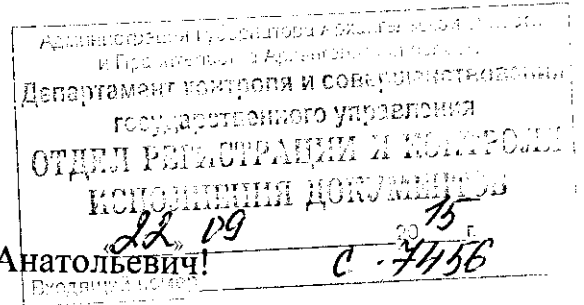 Администрация Губернатора Архангельской области
и Правительства Архангельской области
Департамент контроля и совершенствования
государственного управления
ОТДЕЛ РЕГИСТРАЦИИ И КОНТРОЛЯ
ИСПОЛНЕНИЯ ДОКУМЕНТОВ
"22" 09 2015 г.
Анатольевич!
Входящий номер с-7456